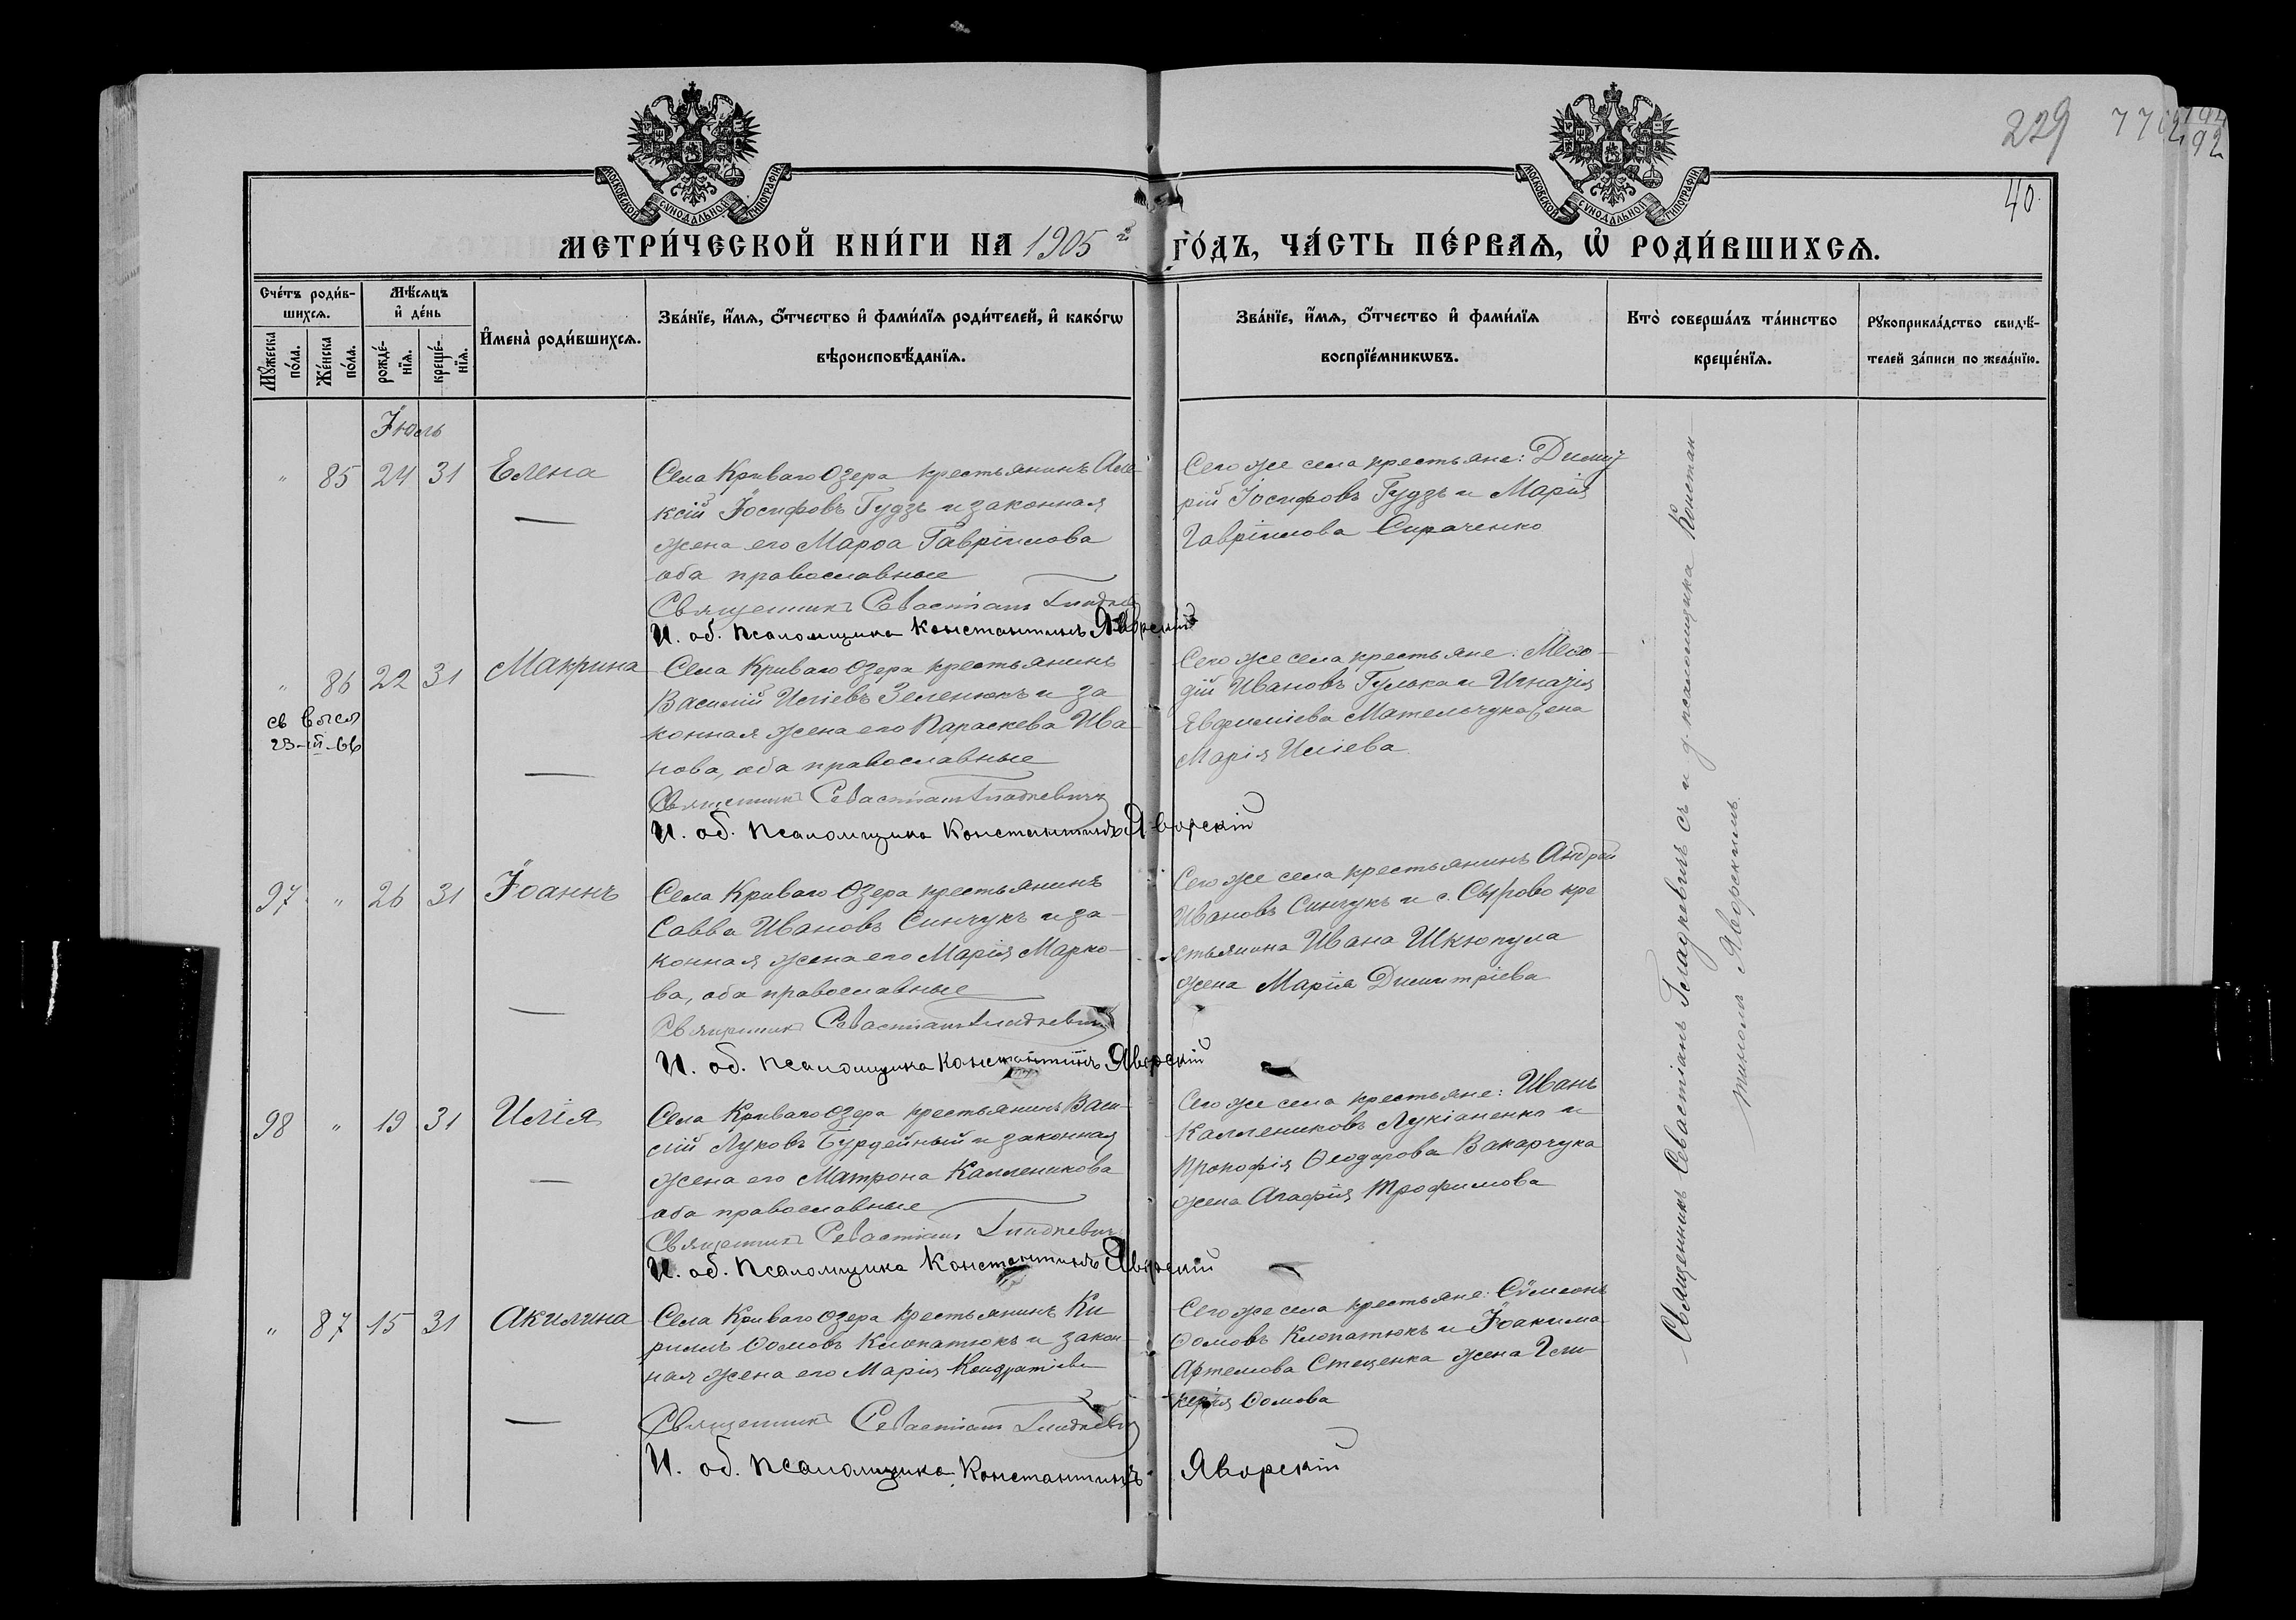 229
40.
МОСКОВСКОЙ СѴНОДАЛЬНОЙ ТИПОГРАФІИ
МОСКОВСКОЙ СѴНОДАЛЬНОЙ ТИПОГРАФІИ
МЕТРИ́ЧЕСКОЙ КНИ́ГИ НА 1905 й ГО́ДЪ, ЧА́СТЬ ПЕ́РВАѦ, Ѡ҆ РОДИ́ВШИХСѦ.
Сче́тъ роди́в-
шихсѧ.
Мꙋ́жеска по́ла.
Же́нска по́ла.
Мѣ́сѧцъ
и҆ де́нь
рожде́-
нїѧ.
креще́-
нїѧ.
И҆мена̀ роди́вшихсѧ.
Зва́нїе, и҆́мѧ, ѻ҆́тчество и҆ фами́лїѧ роди́телей, и҆ како́гѡ
вѣроисповѣ́данїѧ.
Зва́нїе, и҆́мѧ, ѻ҆́тчество и҆ фами́лїѧ
воспрїе́мникѡвъ.
Кто̀ соверша́лъ та́инство
креще́нїѧ.
Рꙋкоприкла́дство свидѣ́-
телей за́писи по жела́нїю.
Іюль
" 85 24 31 Елена
Села Криваго Озера крестьянинъ Але-
ксій Іосифовъ Гудзь и законная
жена его Марѳа Гавріилова
оба православные
Священникъ Севастіанъ Гладкевичъ
И. об. псаломщика Константинъ Яворскій
Сего же села крестьяне: Димит
рій Іосифовъ Гудзь и Марія
Гавріилова Сираченко
" 86 22 31 Макрина
23-III-66
Села Криваго Озера крестьянинъ
Василій Иліевъ Зеленюкъ и за
конная жена его Параскева Ива-
нова, оба православные
Священникъ Севастіанъ Гладкевичъ
И. об. псаломщика Константинъ Яворскій
Сего же села крестьяне: Меѳо-
дій Ивановъ Гулька и Игнатія
Евфиміева Мательчука жена
Марія Иліева
97 " 26 31 Іоаннъ
Села Криваго Озера крестьянинъ
Савва Ивановъ Синчукъ и за-
конная жена его Марія Марко-
ва, оба православные
Священникъ Севастіанъ Гладкевичъ
И. об. псаломщика Константинъ Яворскій
Сего же села крестьянинъ Андрей
Ивановъ Синчукъ и с. Сырово кре
стьянина Ивана Шкюпула
жена Марія Димитріева
98 " 19 31 Илія
Села Криваго Озера крестьянинъ Васи-
лій Луковъ Бурдейный и законная
жена его Матрона Каллениковa
оба православные
Священникъ Севастіанъ Гладкевичъ
И. об. псаломщика Константинъ Яворскій
Сего же села крестьяне: Иванъ
Каллениковъ Лукіаненко и
Прокофія Ѳеодорова Вакарчука
жена Агафія Трофимова
" 87 15 31 Акилина
Села Криваго Озера крестьянинъ Ки
риллъ Ѳомовъ Клопатюкъ и закон-
ная жена его Марія Кондратіева
Священникъ Севастіанъ Гладкевичъ
И. об. псаломщика Константинъ Яворскій
Сего же села крестьяне: Сѵмеонъ
Ѳомовъ Клопатюкъ и Іоакима
Артемова Стеценка жена Гли-
керія Ѳомова
Священникъ Севастіанъ Гладкевичъ съ и. д. псаломщика Констан
тиномъ Яворскимъ.